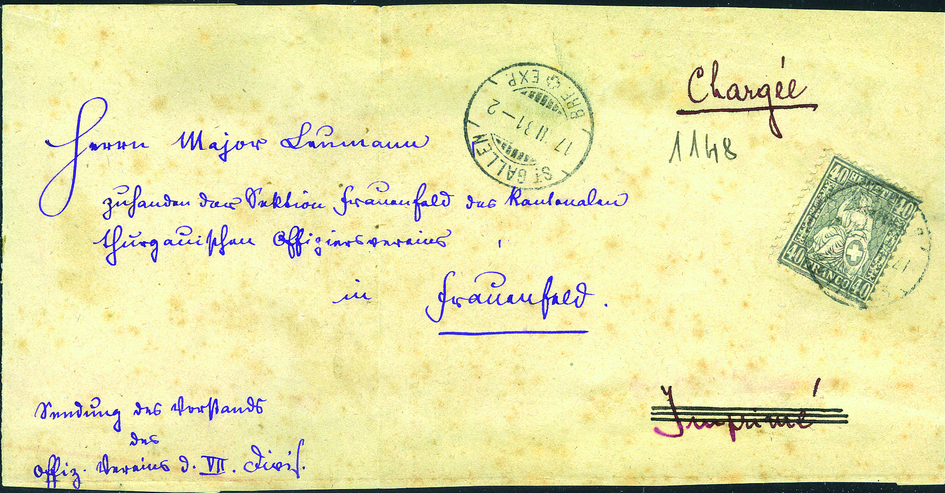 Chargée
1148
ST. GALLEN
17. II 81 — 2
BRF. EXP.
Herrn Major Leumann
zuhanden der Sektion Frauenfeld des Kantonalen
thurgauischen Offiziersvereins
in Frauenfeld.
40 HELVETIA 40
40 FRANCO 40
Imprimé
Sendung des Vorstands
des
Offiz. Vereins d. VII. Divis.